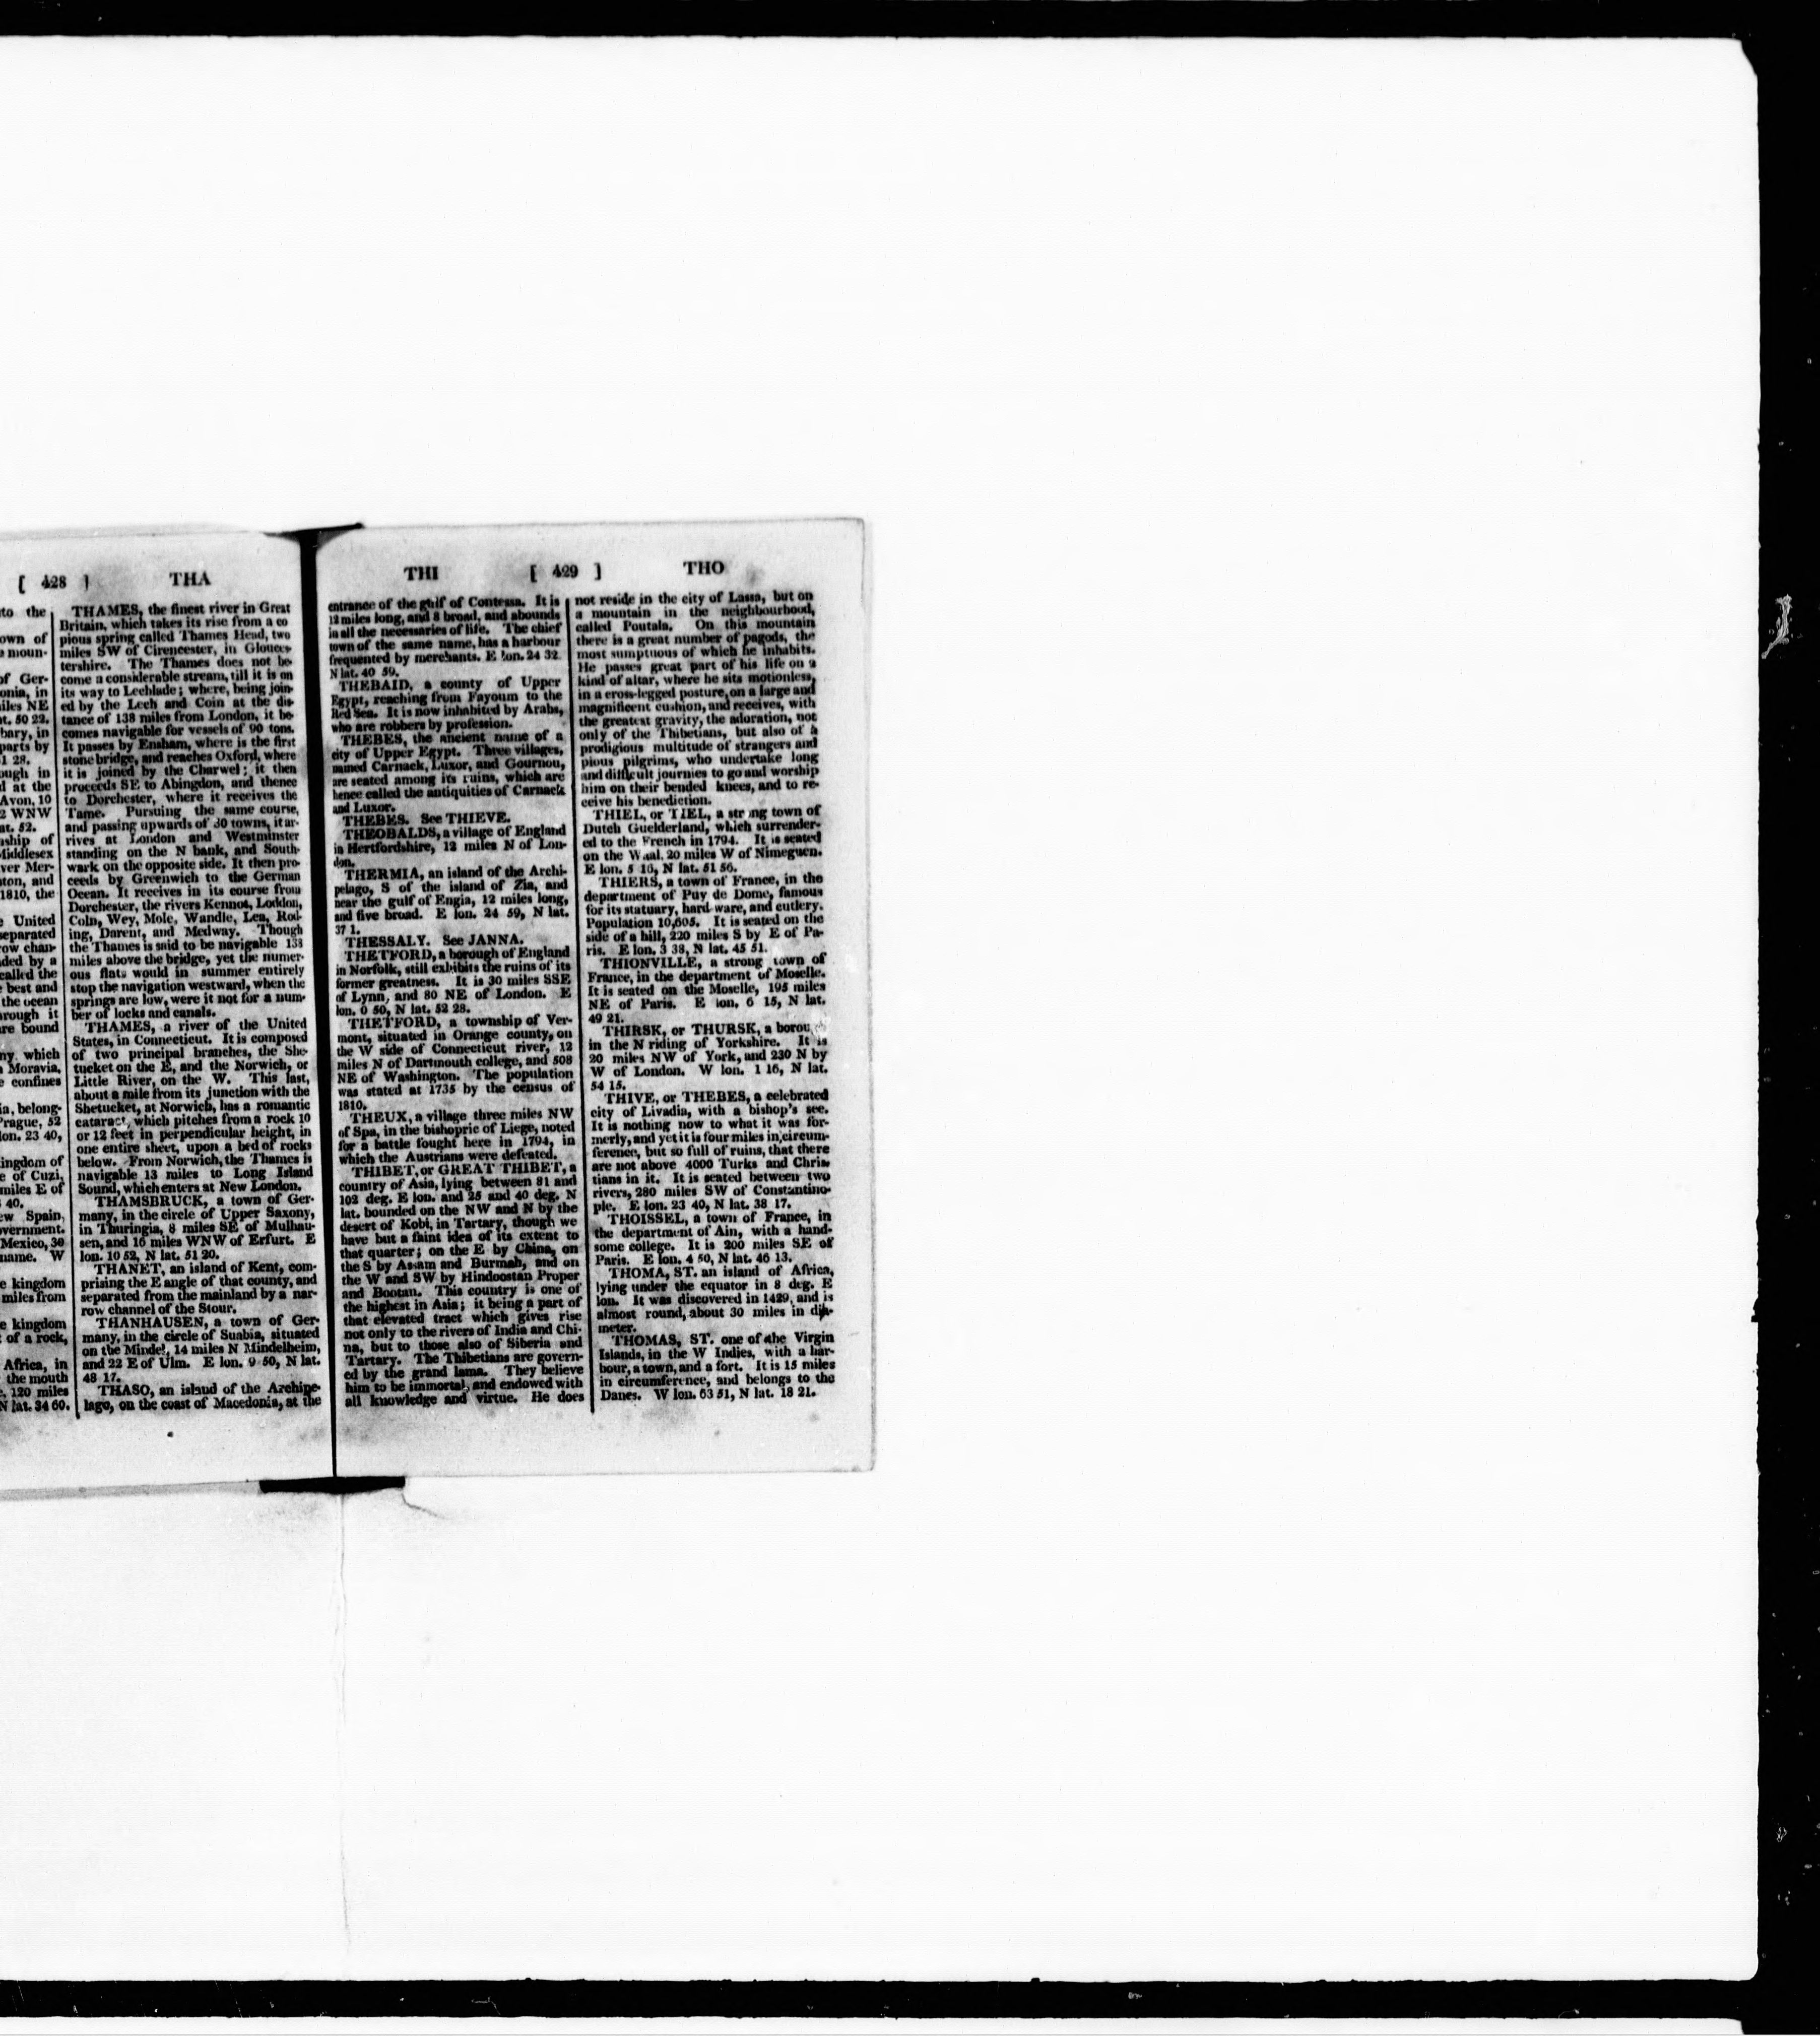 [ 428 ] THA
to the
own of
moun-
of Ger-
onia, in
iles NE
at. 50 22.
bary, in
parts by
1 28.
ough in
d at the
Avon, 10
2 WNW
at. 52.
nship of
Middlesex
ver Mer-
ton, and
1810, the
United
separated
row chan-
ded by a
called the
best and
the ocean
hrough it
are bound
ny which
Moravia,
confines
ia, belong-
Prague, 52
lon. 23 40,
ingdom of
e of Cuzi,
miles E of
40.
ew Spain,
vernment.
Mexico, 30
name. W
e kingdom
miles from
e kingdom
of a rock,
Africa, in
the mouth
120 miles
N lat. 34 60.
THAMES, the finest river in Great
Britain, which takes its rise from a co
pious spring called Thames Head, two
miles SW of Cirencester, in Glouces
tershire. The Thames does not be-
come a considerable stream, till it is on
its way to Lechlade; where, being join-
ed by the Lech and Coin at the dis-
tance of 138 miles from London, it be-
comes navigable for vessels of 90 tons.
It passes by Ensham, where is the first
stone bridge, and reaches Oxford, where
it is joined by the Charwel; it then
proceeds SE to Abingdon, and thence
to Dorchester, where it receives the
Tame. Pursuing the same course,
and passing upwards of 30 towns, it ar-
rives at London and Westminster
standing on the N bank, and South-
wark on the opposite side. It then pro-
ceeds by Greenwich to the German
Ocean. It receives in its course from
Dorchester, the rivers Kennot, Loddon,
Coln, Wey, Mole, Wandle, Lea, Rod-
ing, Darent, and Medway. Though
the Thames is said to be navigable 138
miles above the bridge, yet the numer-
ous flats would in summer entirely
stop the navigation westward, when the
springs are low, were it not for a num-
ber of locks and canals.
THAMES, a river of the United
States, in Connecticut. It is composed
of two principal branches, the She-
tucket on the E, and the Norwich, or
Little River, on the W. This last,
about a mile from its junction with the
Shetucket, at Norwich, has a romantic
cataract, which pitches from a rock 10
or 12 feet in perpendicular height, in
one entire sheet, upon a bed of rocks
below. From Norwich, the Thames is
navigable 13 miles to Long Island
Sound, which enters at New London.
THAMSBRUCK, a town of Ger-
many, in the circle of Upper Saxony,
in Thuringia, 8 miles SE of Mulhau-
sen, and 16 miles WNW of Erfurt. E
lon. 10 52, N lat. 51 20.
THANET, an island of Kent, com-
prising the E angle of that county, and
separated from the mainland by a nar-
row channel of the Stour.
THANHAUSEN, a town of Ger-
many, in the circle of Suabia, situated
on the Mindel, 14 miles N Mindelheim,
and 22 E of Ulm. E lon. 9 50, N lat.
48 17.
THASO, an island of the Archipe-
lago, on the coast of Macedonia, at the
THI [ 429 ] THO
entrance of the gulf of Contessa. It is
12 miles long, and 8 broad, and abounds
in all the necessaries of life. The chief
town of the same name, has a harbour
frequented by merchants. E lon. 24 32
N lat. 40 59.
THEBAID, a county of Upper
Egypt, reaching from Fayoum to the
Red Sea. It is now inhabited by Arabs,
who are robbers by profession.
THEBES, the ancient name of a
city of Upper Egypt. Three villages,
named Carnack, Luxor, and Gournou,
are seated among its ruins, which are
hence called the antiquities of Carnack
and Luxor.
THEBES. See THIEVE.
THEOBALDS, a village of England
in Hertfordshire, 12 miles N of Lon-
don.
THERMIA, an island of the Archi-
pelago, S of the island of Zia, and
near the gulf of Engia, 12 miles long,
and five broad. E lon. 24 59, N lat.
37 1.
THESSALY. See JANNA.
THETFORD, a borough of England
in Norfolk, still exhibits the ruins of its
former greatness. It is 30 miles SSE
of Lynn, and 80 NE of London. E
lon. 0 50, N lat. 52 28.
THETFORD, a township of Ver-
mont, situated in Orange county, on
the W side of Connecticut river, 12
miles N of Dartmouth college, and 508
NE of Washington. The population
was stated at 1735 by the census of
1810.
THEUX, a village three miles NW
of Spa, in the bishopric of Liege, noted
for a battle fought here in 1794, in
which the Austrians were defeated.
THIBET, or GREAT THIBET, a
country of Asia, lying between 81 and
102 deg. E lon. and 25 and 40 deg. N
lat. bounded on the NW and N by the
desert of Kobi, in Tartary, though we
have but a faint idea of its extent to
that quarter; on the E by China, on
the S by Assam and Burmah, and on
the W and SW by Hindoostan Proper
and Bootan. This country is one of
the highest in Asia; it being a part of
that elevated tract which gives rise
not only to the rivers of India and Chi-
na, but to those also of Siberia and
Tartary. The Thibetians are govern-
ed by the grand lama. They believe
him to be immortal, and endowed with
all knowledge and virtue. He does
not reside in the city of Lassa, but on
a mountain in the neighbourhood,
called Poutala. On this mountain
there is a great number of pagods, the
most sumptuous of which he inhabits.
He passes great part of his life on a
kind of altar, where he sits motionless,
in a cross-legged posture, on a large and
magnificent cushion, and receives, with
the greatest gravity, the adoration, not
only of the Thibetians, but also of a
prodigious multitude of strangers and
pious pilgrims, who undertake long
and difficult journies to go and worship
him on their bended knees, and to re-
ceive his benediction.
THIEL, or TIEL, a strong town of
Dutch Guelderland, which surrender-
ed to the French in 1794. It is seated
on the Waal, 20 miles W of Nimeguen.
E lon. 5 16, N lat. 51 56.
THIERS, a town of France, in the
department of Puy de Dome, famous
for its statuary, hard ware, and cutlery.
Population 10,605. It is seated on the
side of a hill, 220 miles S by E of Pa-
ris. E lon. 3 38, N lat. 45 51.
THIONVILLE, a strong town of
France, in the department of Moselle.
It is seated on the Moselle, 195 miles
NE of Paris. E lon. 6 15, N lat.
49 21.
THIRSK, or THURSK, a borou
in the N riding of Yorkshire. It is
20 miles NW of York, and 230 N by
W of London. W lon. 1 16, N lat.
54 15.
THIVE, or THEBES, a celebrated
city of Livadia, with a bishop's see.
It is nothing now to what it was for-
merly, and yet it is four miles in circum-
ference, but so full of ruins, that there
are not above 4000 Turks and Chris
tians in it. It is seated between two
rivers, 280 miles SW of Constantino-
ple. E lon. 23 40, N lat. 38 17.
THOISSEL, a town of France, in
the department of Ain, with a hand-
some college. It is 200 miles SE of
Paris. E lon. 4 50, N lat. 46 13.
THOMA, ST. an island of Africa,
lying under the equator in 8 deg. E
lon. It was discovered in 1429, and is
almost round, about 30 miles in dia-
meter.
THOMAS, ST. one of the Virgin
Islands, in the W Indies, with a har-
bour, a town, and a fort. It is 15 miles
in circumference, and belongs to the
Danes. W lon. 63 51, N lat. 18 21.